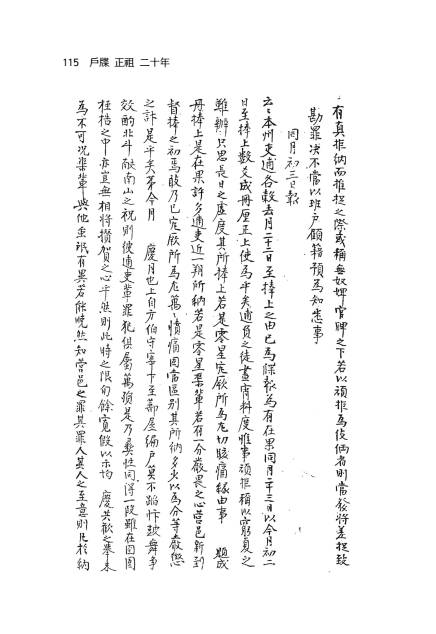 115 戶牒 正祖 二十年
有真拒納而推捉之際或稱無奴婢官牌之下若以頑拒為伎倆者則當發將差捉致
勘罪決不當以班戶顧籍預為知悉事
同月初三日報
云云本州吏逋各穀去月二十二日至捧上之由已為牒報為有在果同月二十三日以今月初二
日至捧上數爻成冊厘正上使為乎矣逋負之徒晝宵料度惟事頑拒稱以窮夏之
難辦只思長日之虛度其所捧上若是零星究厥所為尤切駭痛緣由事 題成
冊捧上是在果許多逋吏近一朔所納若是零星渠輩若有一分嚴畏之心營邑新到
督捧之初焉敢乃已究厥所為尤萬萬憤痛同當區別其所納多少以為分等嚴懲
之計是乎矣第今月 慶月也上自方伯守宰下至蔀屋編戶莫不蹈忭鼓舞爭
效酌北斗獻南山之祝則彼逋吏輩罪犯俱屬萬殞是乃彝性同得一段雖在囹圄
桎梏之中亦豈無相將攢賀之心乎然則此時之限旬餘寬假以示均 慶共歡之舉未
為不可況渠輩與他虫祇有異若能曉然知營邑之罪其罪人其人之至意則凡於納